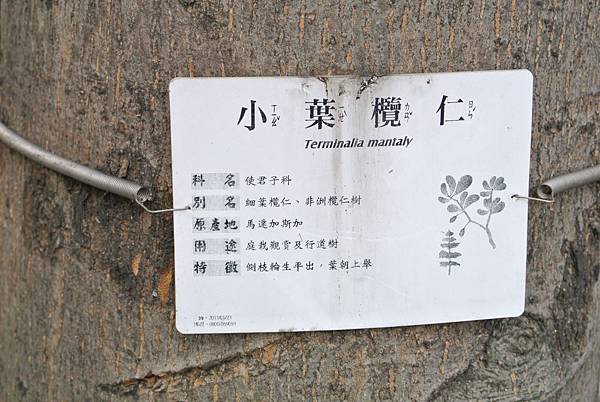 小葉欖仁
Terminalia mantaly
科名 使君子科
別名 細葉欖仁、非洲欖仁樹
原產地 馬達加斯加
用途 庭栽觀賞及行道樹
特徵 側枝輪生平出，葉朝上舉